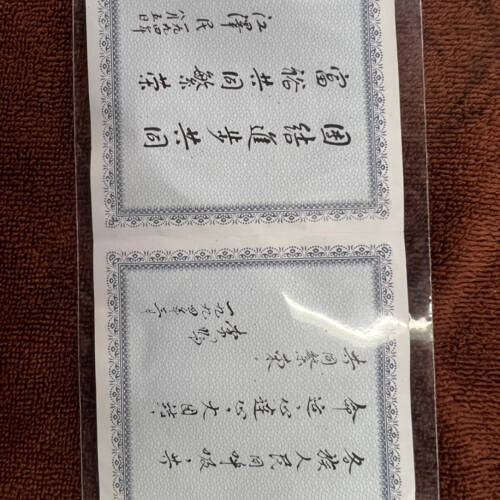 团结進步共同
富裕共同繁荣
江澤民
一九九四年
八月五日
各族人民同呼吸、共
命运、心连心、大团结、
共同繁荣.
李鹏